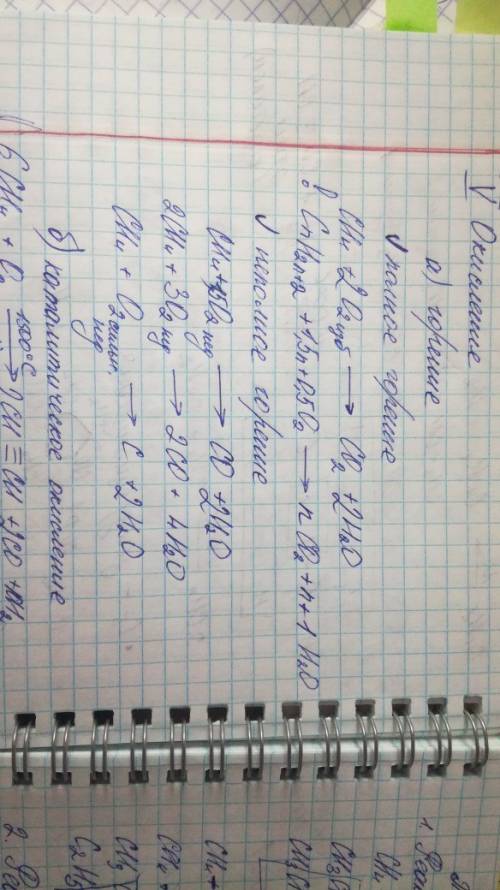 V Окисление
а) горение
✓ полное горение
CH₄ + 2O₂ изб → CO₂ + 2H₂O
! CnH2n+2 + 1,5n+0,5O₂ → n CO₂ + n+1 H₂O
✓ неполное горение
CH₄ + 1,5O₂ нед → CO + 2H₂O
2CH₄ + 3O₂ нд → 2CO + 4H₂O
CH₄ + O₂ сильн нед → C + 2H₂O
б) каталитическое окисление
6 CH₄ + O₂ 1500°C → CH ≡ CH + 2CO +
1. Реак
CH₄
CH₃
CH₃C
CH₄ +
CH₄ +
CH₃
C₂H₅
2. Ре